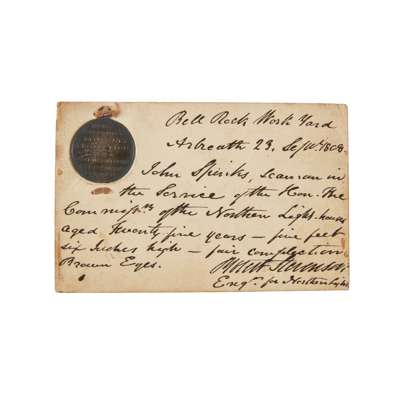 Bell Rock Work Yard
Arbroath 23. Sepr. 1808
John Spinks, Seaman in
the Service of the Hon. the
Commissrs. of the Northern Light-houses
aged Twenty five years — five feet
six Inches high — fair complection
Brown Eyes.
Robert Stevenson
Engr. for Northern Lights